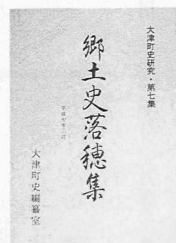 大津町史研究・第七集
郷土史落穂集
大津町史編纂室